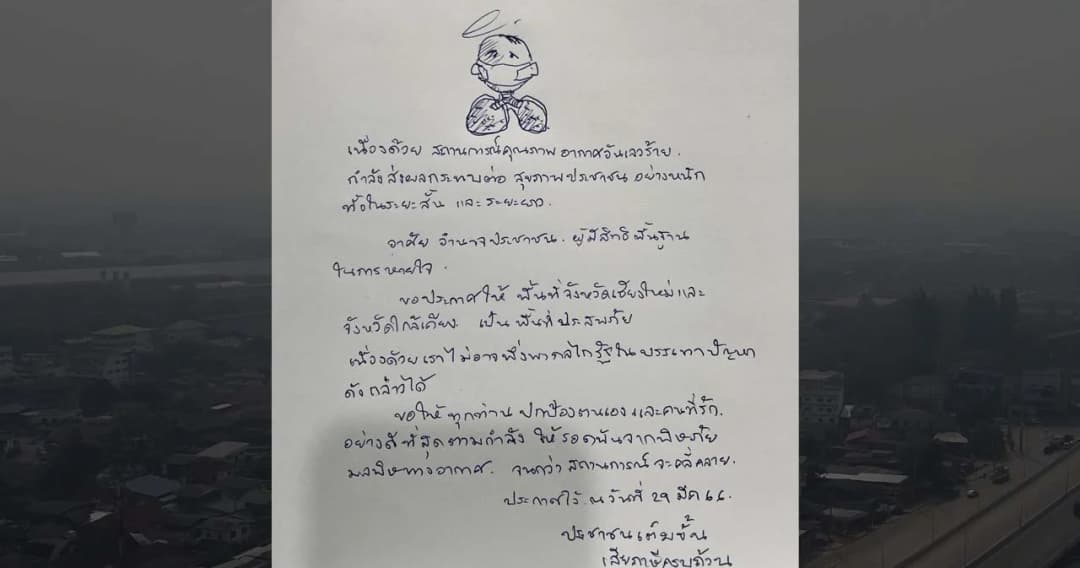 เนื่องด้วย สถานการณ์คุณภาพอากาศอันเลวร้าย.
กำลังส่งผลกระทบต่อ สุขภาพประชาชน อย่างหนัก
ทั้งในระยะสั้น และ ระยะยาว.
อาศัย อำนาจประชาชน. ผู้มีสิทธิพื้นฐาน
ในการหายใจ.
ขอประกาศให้ พื้นที่จังหวัดเชียงใหม่และ
จังหวัดใกล้เคียง เป็น พื้นที่ประสบภัย
เนื่องด้วยเราไม่อาจพึ่งพากลไกรัฐในบรรเทาปัญหา
ดังกล่าวได้
ขอให้ ทุกท่าน ปกป้องตนเอง และคนที่รัก.
อย่างดีที่สุดตามกำลัง ให้รอดพ้นจากพิษภัย
มลพิษทางอากาศ. จนกว่า สถานการณ์ จะคลี่คลาย.
ประกาศไว้ ณ วันที่ 29 มีค 66.
ประชาชนเต็มขั้น
เสียภาษีครบถ้วน